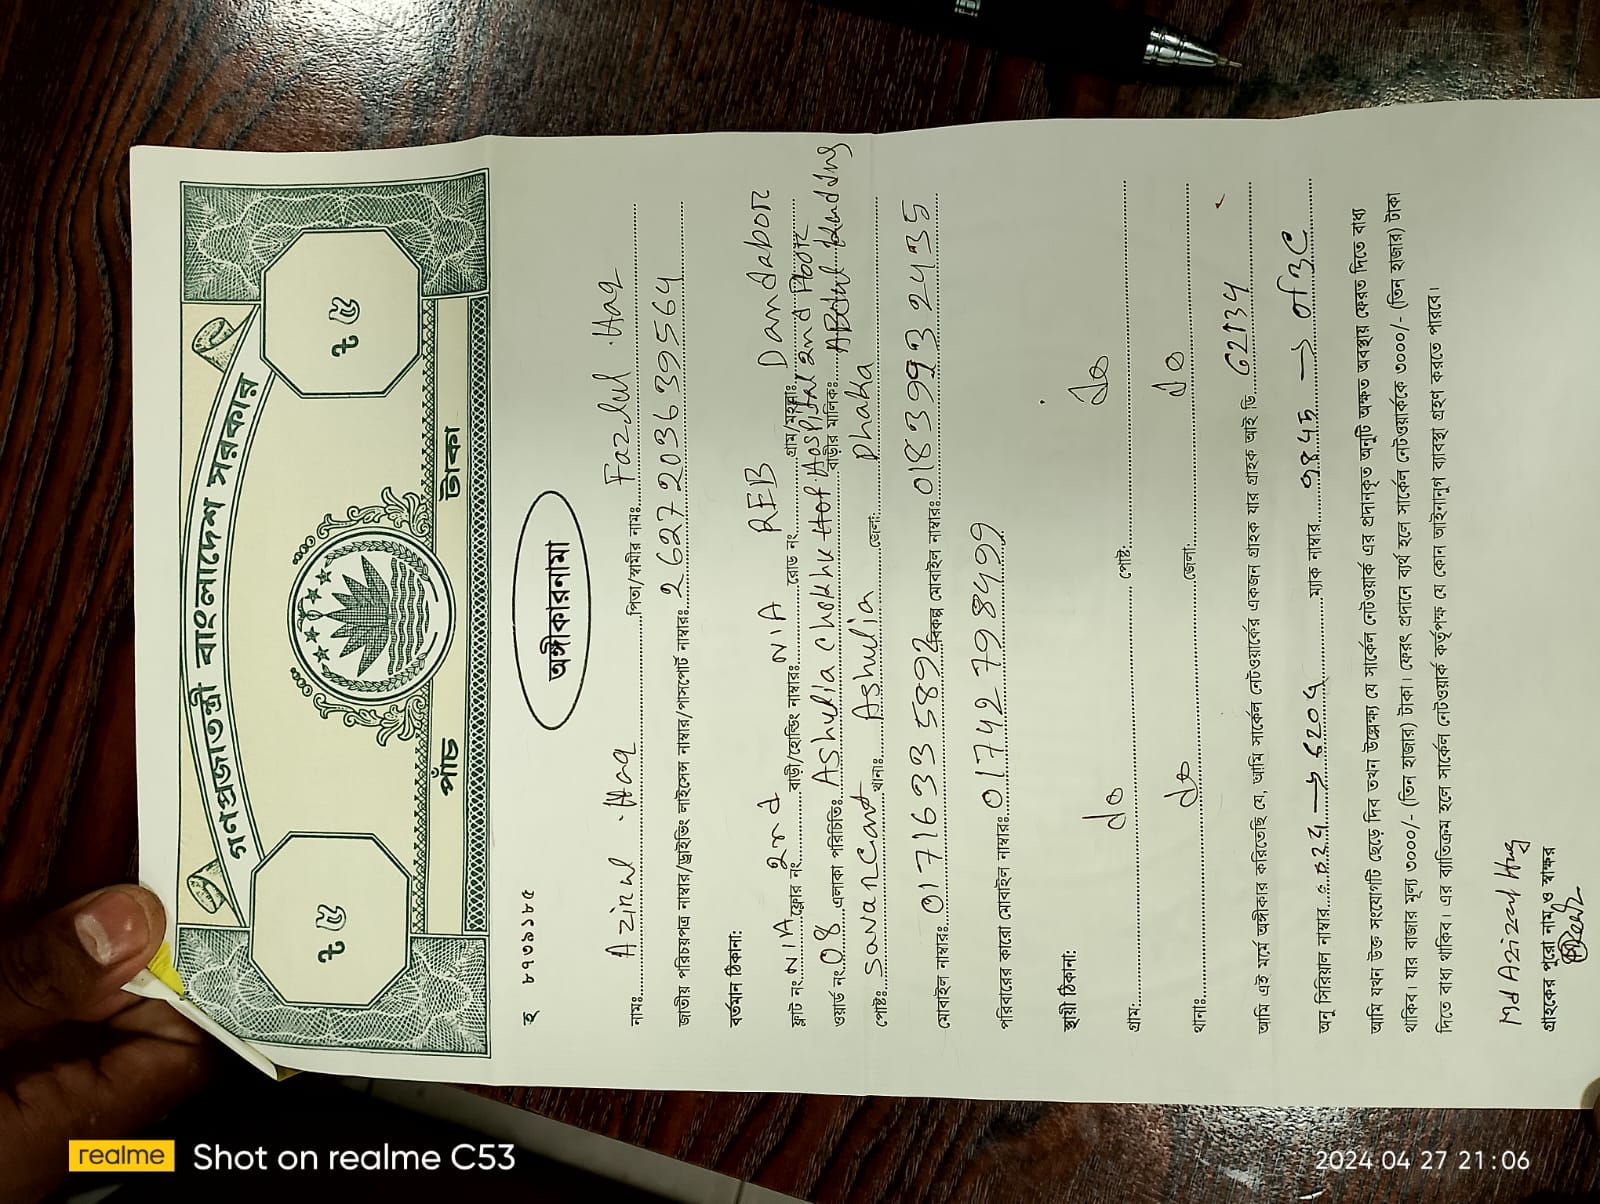 গণপ্রজাতন্ত্রী বাংলাদেশ সরকার
৫ ৳
৫ ৳
পাঁচ টাকা
হ ৮৭৩৯১৮৫
অঙ্গীকারনামা
নামঃ Azizul Haq পিতা/স্বামীর নামঃ Fazlul Haq
জাতীয় পরিচয়পত্র নাম্বার/ড্রাইভিং লাইসেন্স নাম্বার/পাসপোর্ট নাম্বারঃ 2627203639564
বর্তমান ঠিকানা:
ফ্লাট নং N/A ফ্লোর নং 2nd বাড়ী/হোল্ডিং নাম্বারঃ N/A রোড নং PEB গ্রাম/মহল্লাঃ Dandabor
ওয়ার্ড নং 08 এলাকা পরিচিতিঃ Ashulia Chokhu Hospital 2nd Floor বাড়ীর মালিকঃ
পোষ্টঃ Savar Cant থানাঃ Ashulia জেলা: Dhaka
মোবাইল নাম্বারঃ 01716335892 বিকল্প মোবাইল নাম্বারঃ 01839932435
পরিবারের কারো মোবাইল নাম্বারঃ 01742798499
স্থায়ী ঠিকানা:
গ্রাম: do পোষ্ট: do
থানাঃ do জেলা: do
আমি এই মর্মে অঙ্গীকার করিতেছি যে, আমি সার্কেল নেটওয়ার্কের একজন গ্রাহক যার গ্রাহক আই ডি. 62134
অনু সিরিয়াল নাম্বার ম্যাক নাম্বার
আমি যখন উক্ত সংযোগটি ছেড়ে দিব তখন উল্লেক্ষ্য যে সার্কেল নেটওয়ার্ক এর প্রদানকৃত অনুটি অক্ষত অবস্থায় ফেরত দিতে বাধ্য
থাকিব। যার বাজার মূল্য ৩০০০/- (তিন হাজার) টাকা। ফেরৎ প্রদানে ব্যর্থ হলে সার্কেল নেটওয়ার্ককে ৩০০০/- (তিন হাজার) টাকা
দিতে বাধ্য থাকিব। এর ব্যাতিক্রম হলে সার্কেল নেটওয়ার্ক কর্তৃপক্ষ যে কোন আইনানুগ ব্যাবস্থা গ্রহণ করতে পারবে।
Md Azizul Huq
গ্রাহকের পুরো নাম ও স্বাক্ষর
realme Shot on realme C53
2024 04 27 21:06